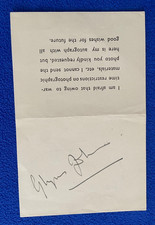 I am afraid that owing to war-
time restrictions on photographic
materials, etc. I cannot send the
photo you kindly requested, but
here is my autograph with all
good wishes for the future.
Glynis Johns